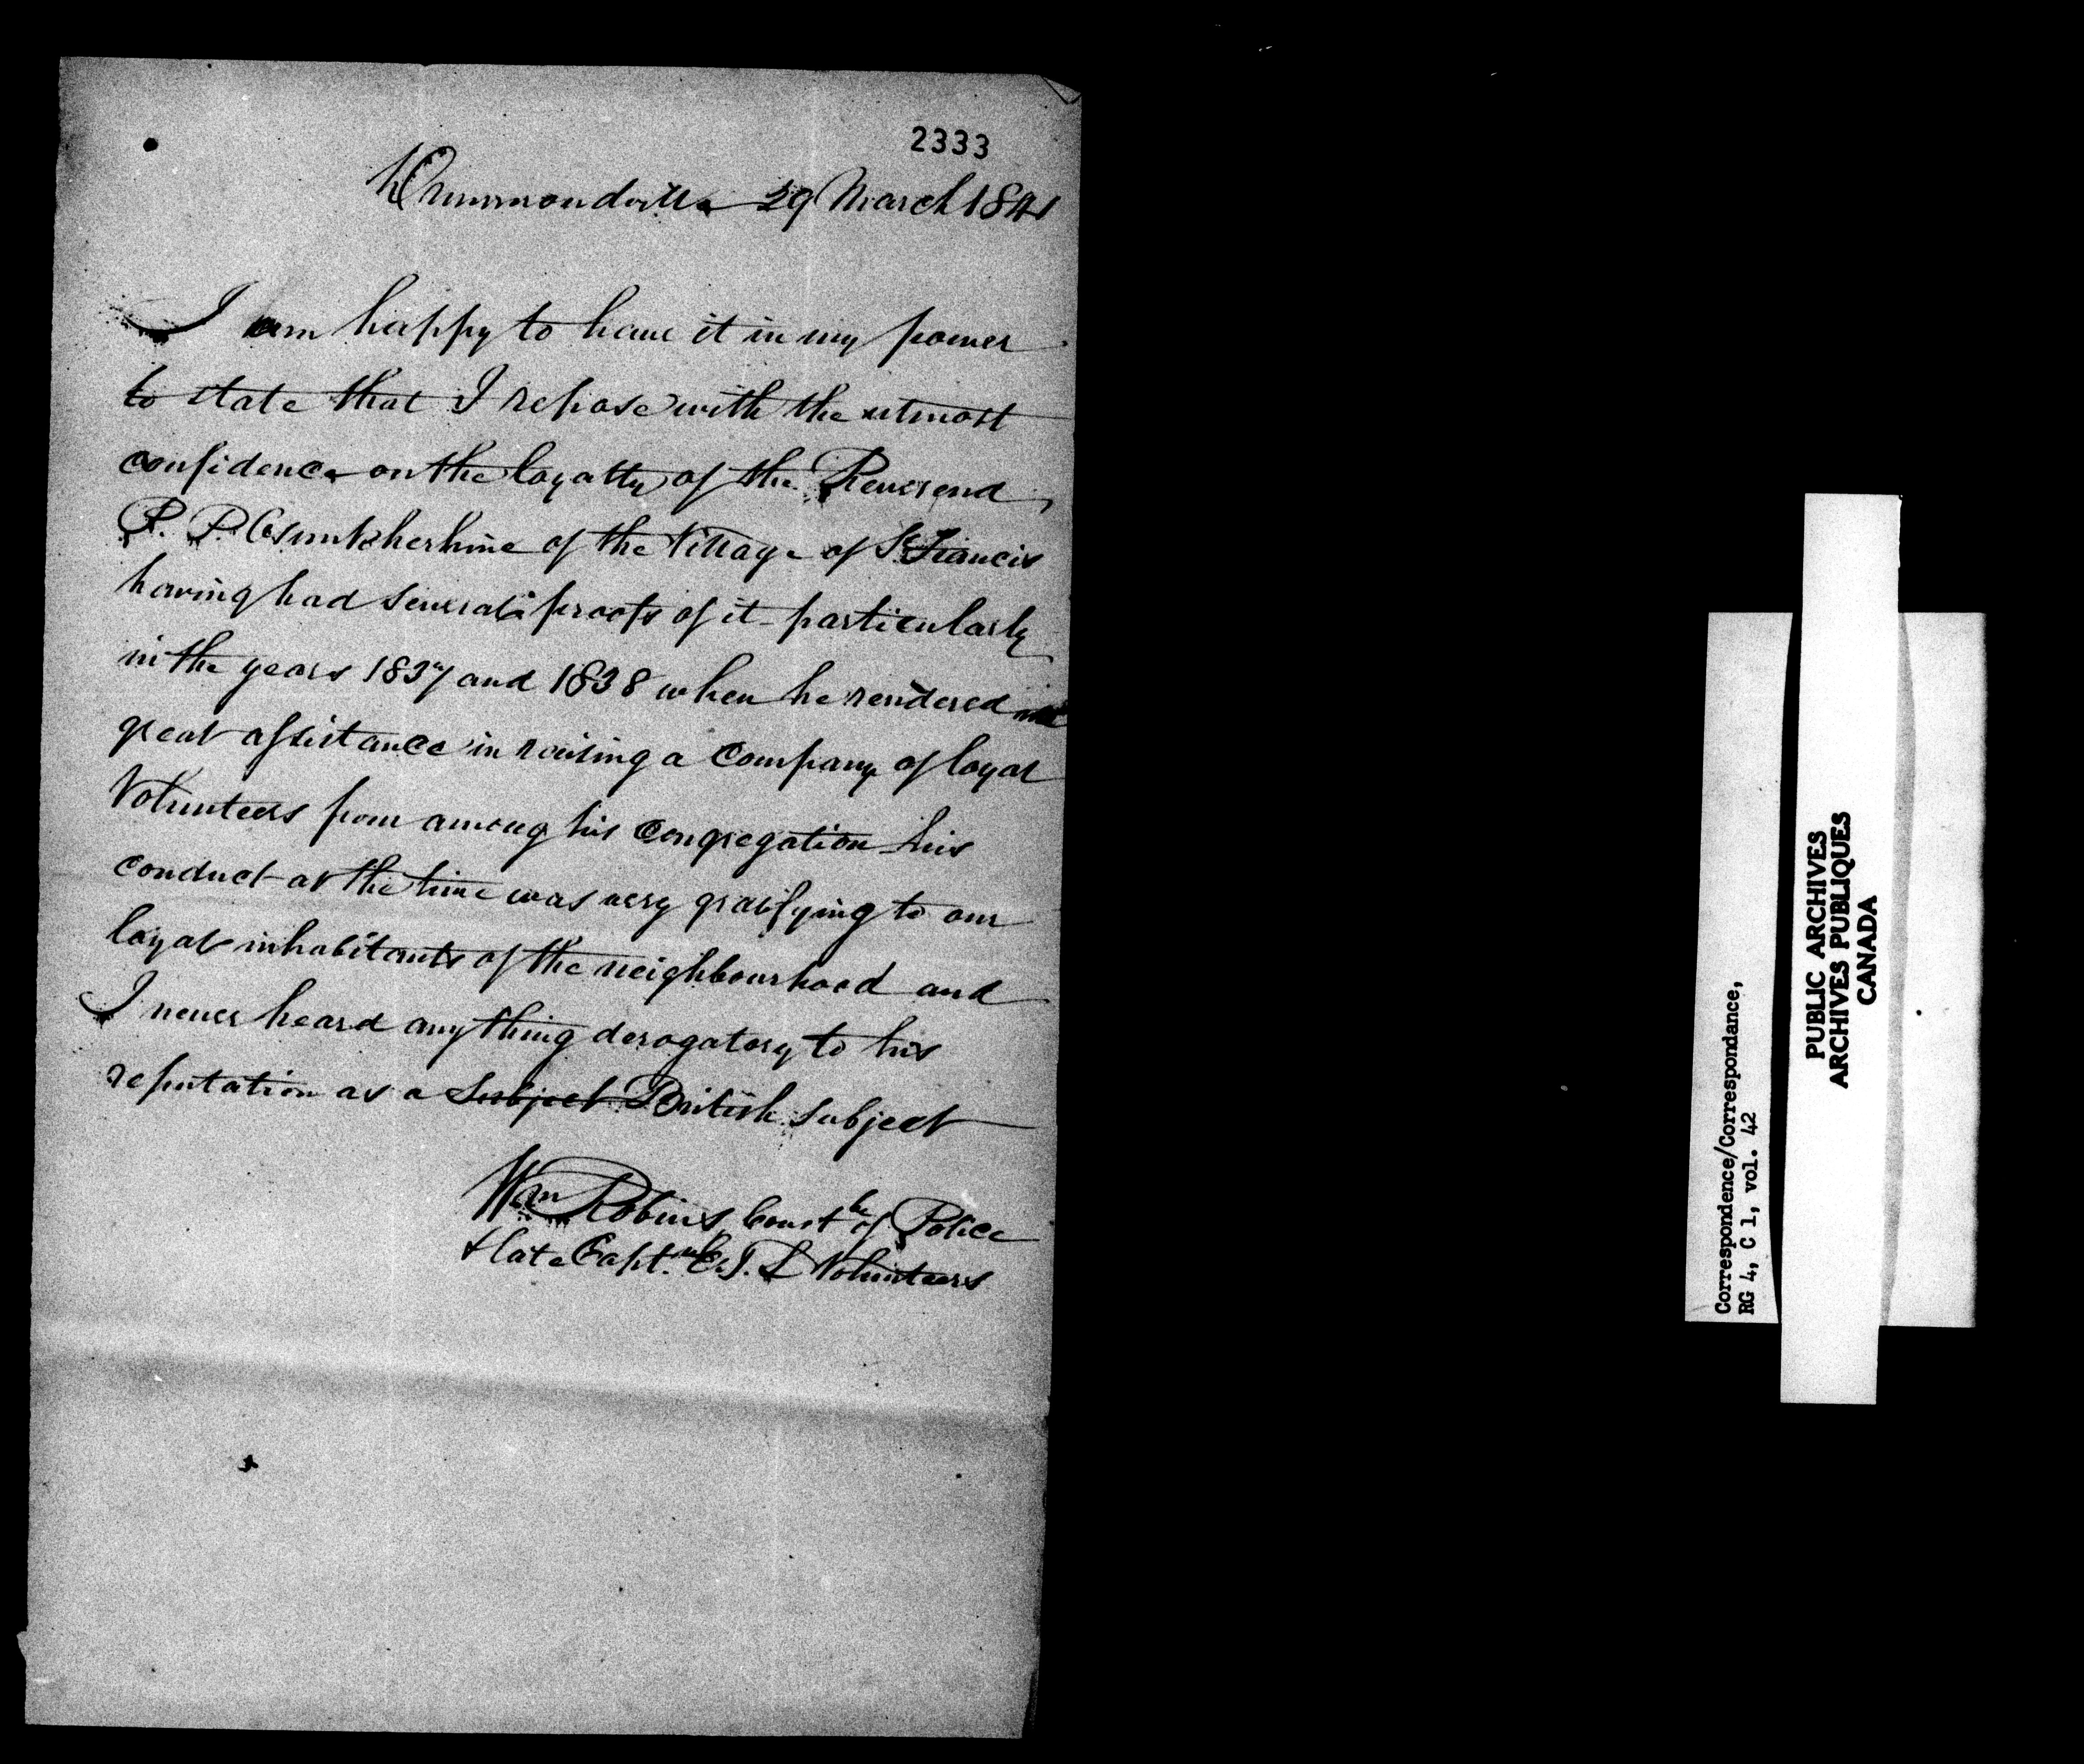 2333
Drummondville 29 March 1841
I am happy to have it in my power
to state that I repose with the utmost
confidence on the loyalty of the Reverend
P. P. Osunkherhine of the Village of St Francis
having had several proofs of it - particularly
in the years 1837 and 1838 when he rendered me
great assistance in raising a Company of loyal
Volunteers from among his Congregation - his
conduct at the time was very gratifying to our
loyal inhabitants of the neighbourhood and
I never heard anything derogatory to his
reputation as a Subject British subject
Wm Robins Const le of Police
& late Captn E. T. L Volunteers
Correspondence/Correspondance,
RG 4, C 1, vol. 42
PUBLIC ARCHIVES
ARCHIVES PUBLIQUES
CANADA